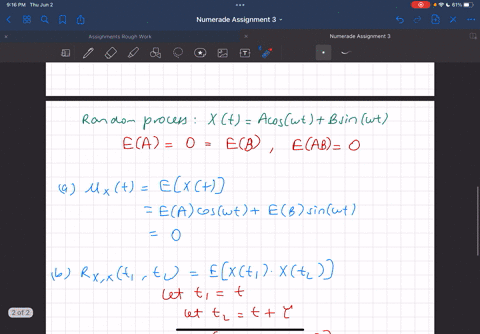 9:16 PM Thu Jun 2
61%
Numerade Assignment 3
Assignments Rough Work
Numerade Assignment 3
Random process: X(t) = Acos(wt) + Bsin(wt)
E(A) = 0 = E(B), E(AB) = 0
(a) μx(t) = E[X(t)]
= E(A) cos(wt) + E(B) sin(wt)
= 0
(b) Rx,x(t1, t2) = E[X(t1) · X(t2)]
let t1 = t
let t2 = t + τ
2 of 2